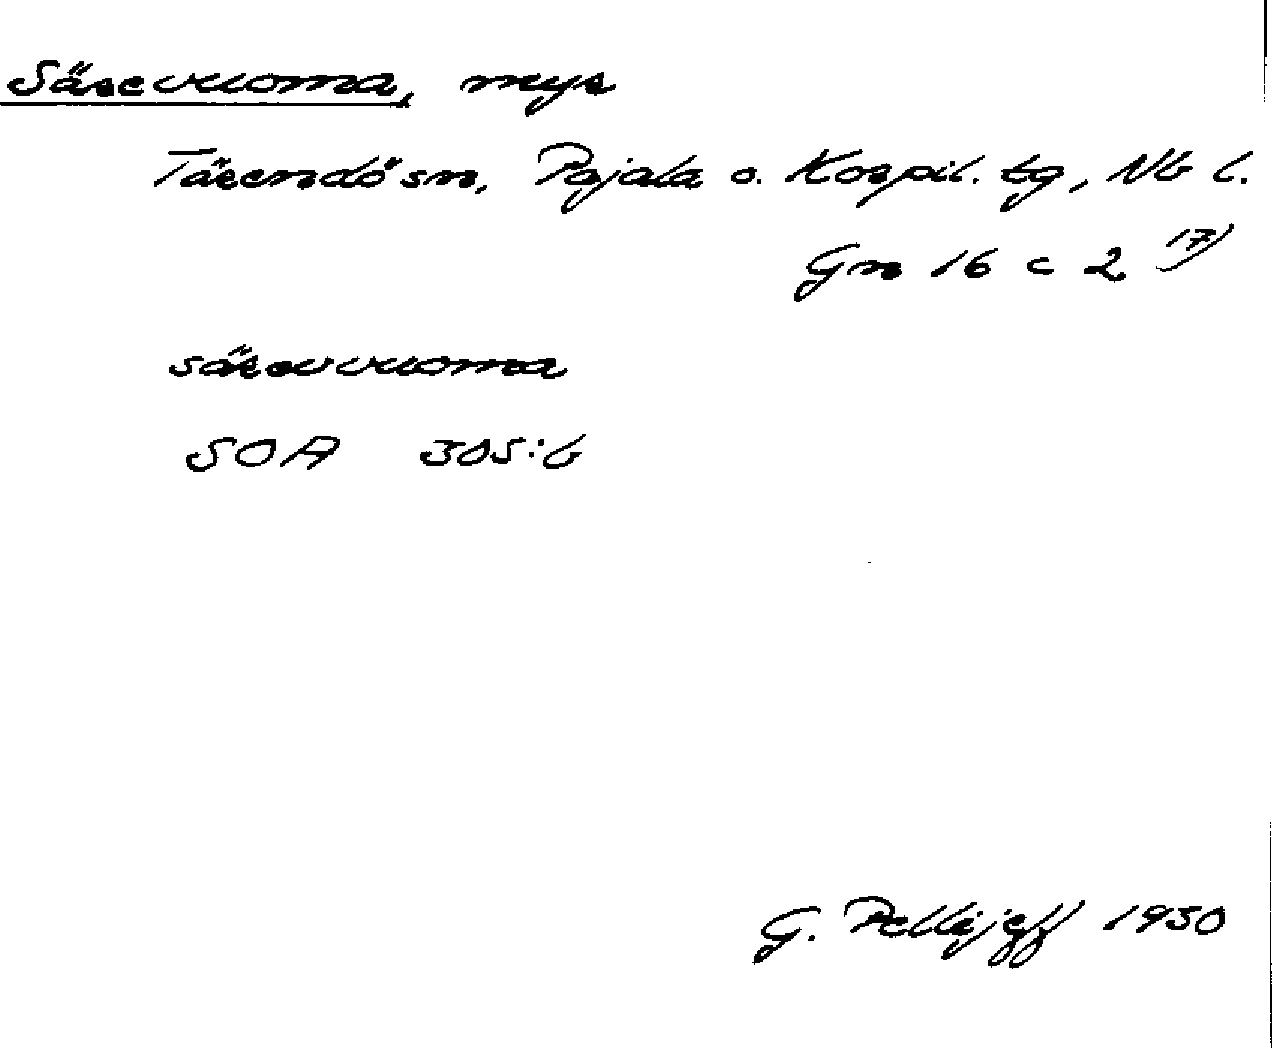 Särevuoma, myr
Tärendö sn, Pajala o. Korpil. tg, Nb l.
Gn 16 c 2 17)
särevvuoma
SOA 305:b
G. Pellijeff 1950